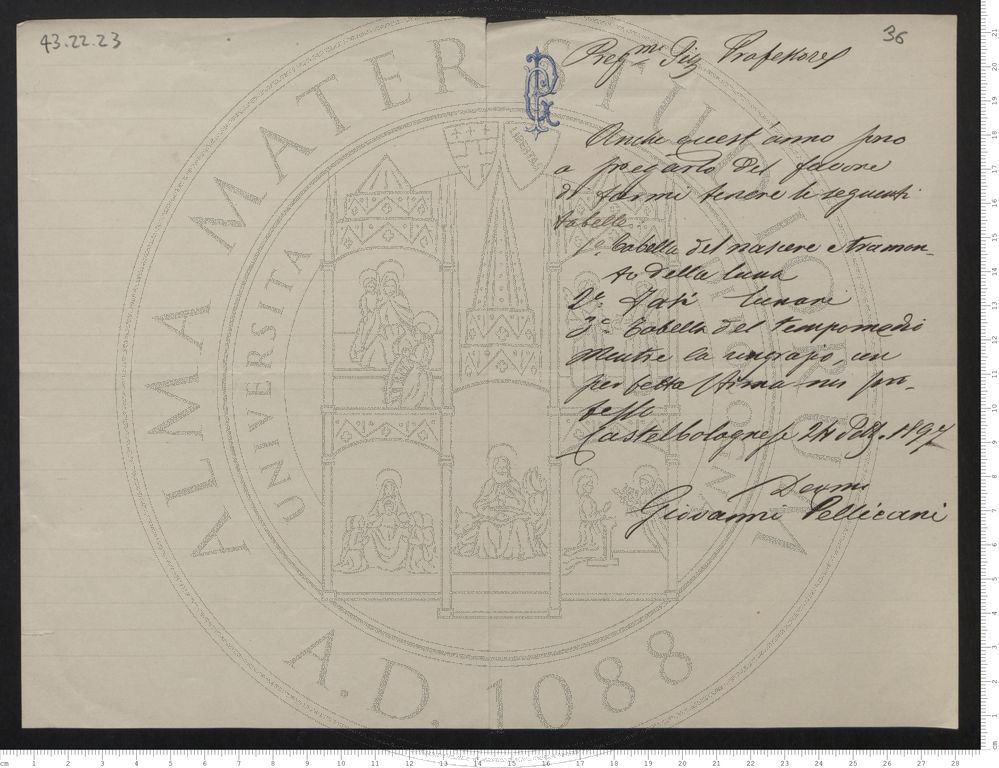 43.22.23
36
Preg.mo Sig. Professore
Anche quest'anno sono
a pregarlo del favore
di farmi tenere le seguenti
tabelle:
1a. Tabella del nascere e tramon-
to della luna
2a. Fasi lunari
3a. Tabella del tempo medio
Mentre la ringrazio, con
perfetta stima mi pro-
fesso
Castelbolognese 24 Dbre. 1897
Devmo
Giovanni Pellicani
ALMA MATER STUDIORUM
UNIVERSITÀ DI BOLOGNA
LIBERTAS
A.D. 1088